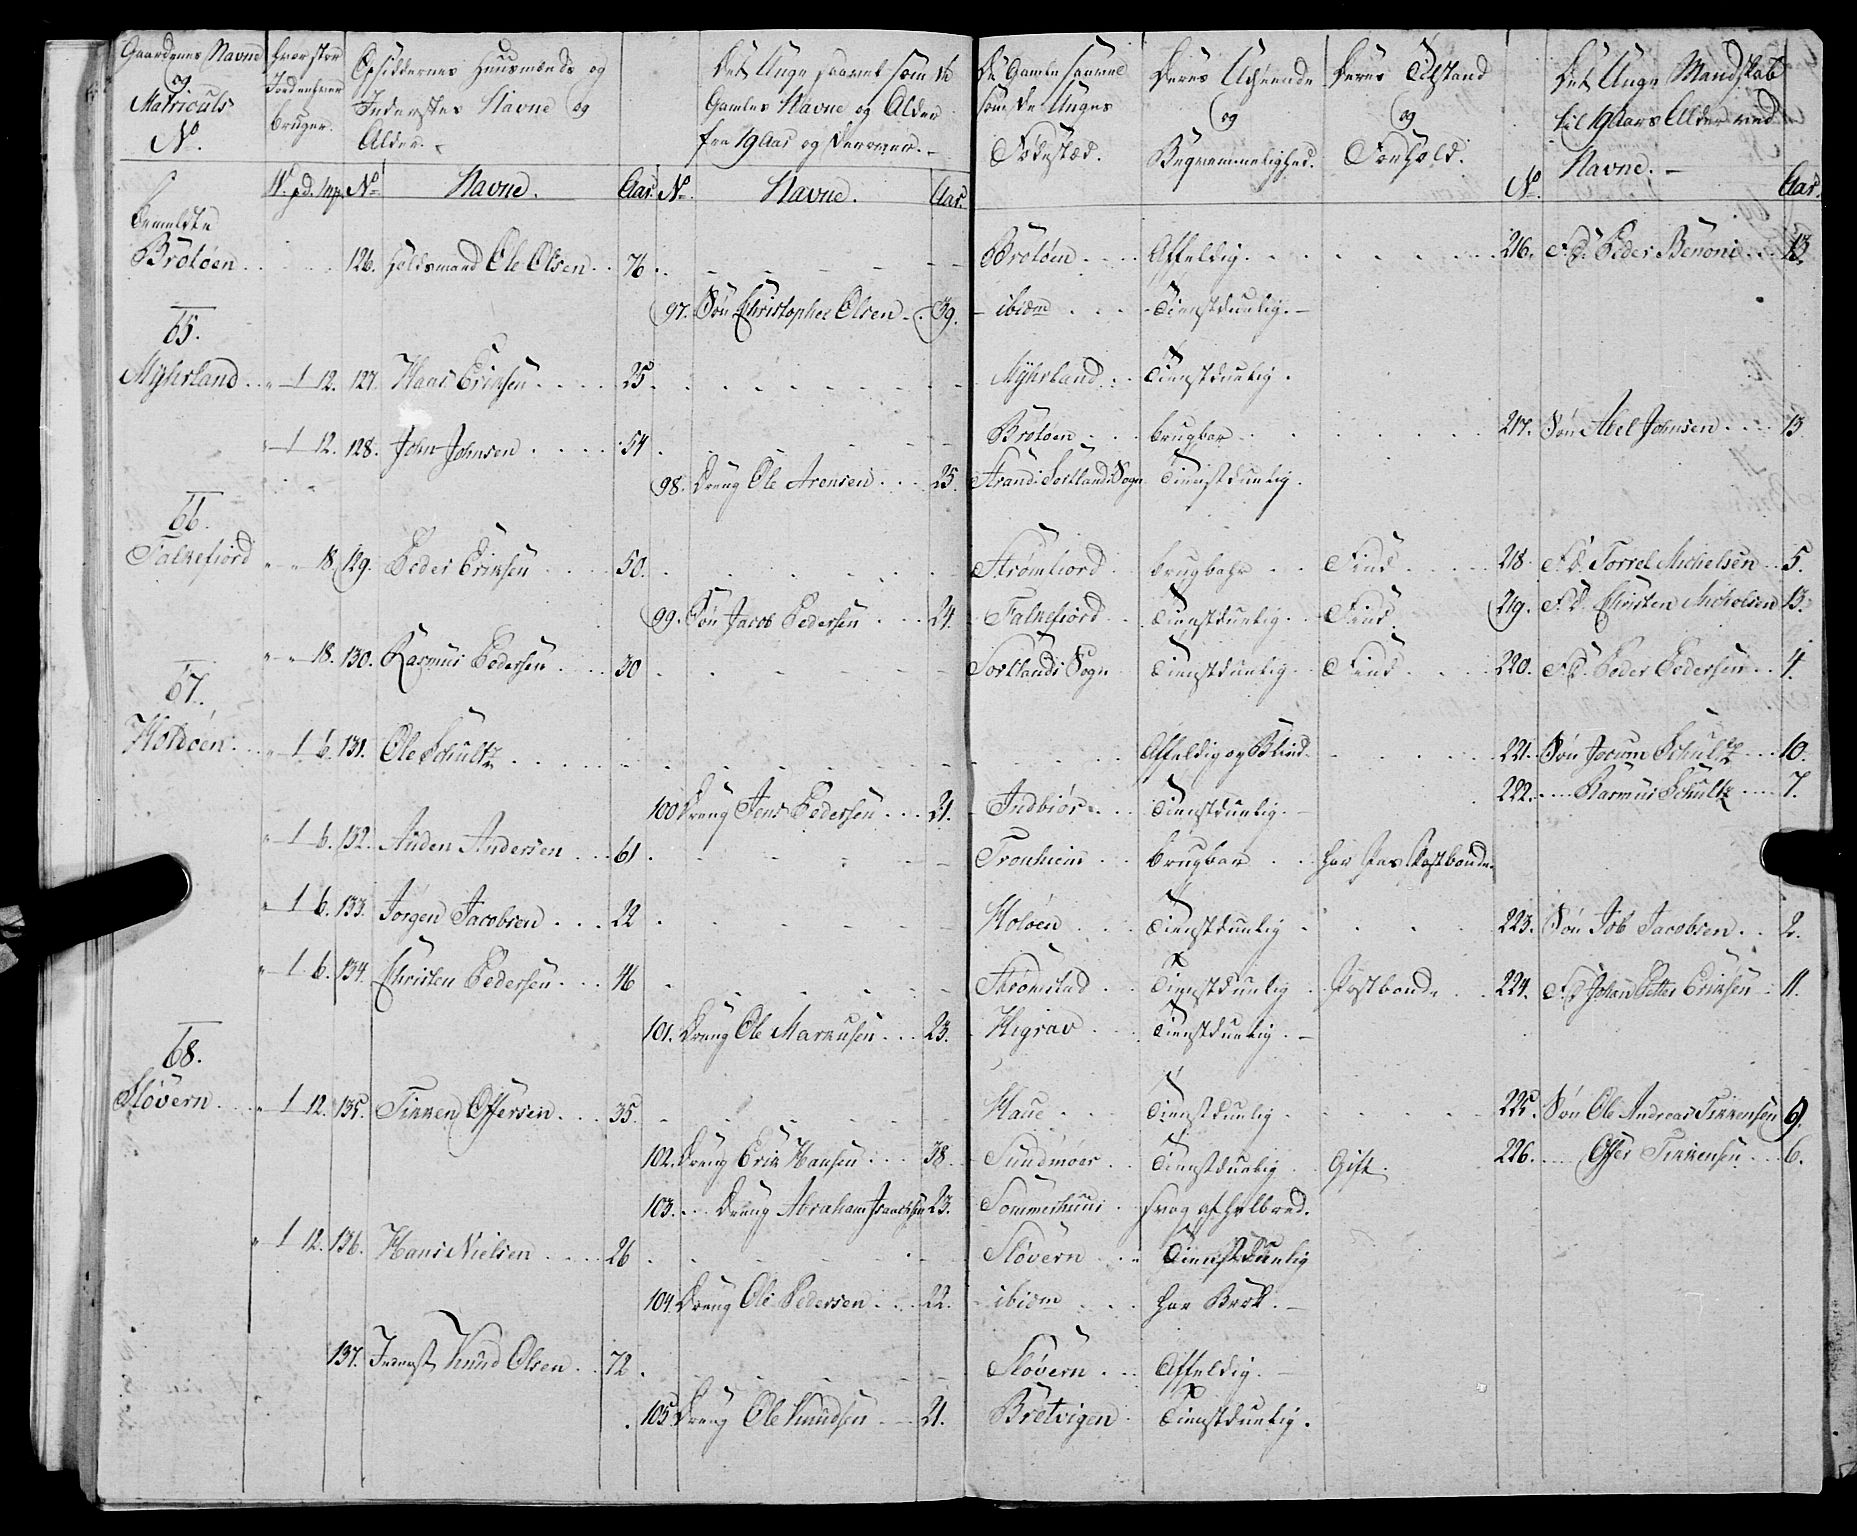 Gaardenes Navne og Matriculs No. | Hvor stor Jord enhver bruger. | Opsiddernes Huusmænds og Inderstes Navne og Alder. | Det Unge saavel som de Gamles Navne og Alder fra 19 Aar og derover. | De Gamle saavel som de Unges Fødestæd. | Deres Udseende og Beqvemmelighed. | Deres Tilstand og Forhold. | Det Unge Mandskab til 19 Aars Alder ved Navne.
W. pd. mk. No. Navne. Aar. No. Navne. Aar. No. Aar.
bemeldte
Brotøen 126. Holdsmand Ole Olsen 76. Brotøen Affeldig. 216. F.d. Peder Benoni 13.
97. Søn Christopher Olsen 39. ibidm Tienstduelig.
65.
Myhrland " 1 12. 127. Hans Eriksen 25. Myhrland Tienstduelig.
" 1 12. 128. John Johnsen 54. Brotøen brugbar 217. Søn Abel Johnsen 13
98. Dreng Ole Arensen 25. Strand i Sortlands Sogn Tienstduelig.
66.
Falkefiord " " 18. 129. Peder Eriksen 50. Strømfiord brugbahr Find 218 F.d. Torrel Michelsen 5.
99. Søn Jacob Pedersen 24. Falkefiord Tienstduelig Find. 219. F.d. Christen Nicholsen 13.
" " 18. 130. Rasmus Pedersen 30 Sortlands Sogn Tienstduelig Find 220. F.d. Peder Pedersen 4.
67.
Holdøen " 1 6. 131. Ole Schultz Affeldig og Blind 221. Søn Jocum Schultz 10.
100 Dreng Jens Pedersen 21. Indbiør Tienstduelig. 222. Rasmus Schultz 7.
" 1 6. 132. Auden Andersen 61. Tronhiem brugbar har Pas Postbonde
" 1 6. 133. Jørgen Jacobsen 22 Holøen Tienstduelig 223. Søn Job Jacobsen 2.
" 1 6. 134. Christen Pedersen 46 Strømstad Tienstduelig Postbonde 224. F.d. Johan Petter Eriksen 11.
101. Dreng Ole Markusen 23. Higrav Tienstduelig.
68.
Støvern " 1 12. 135. Tinken Offersen 35. Haue Tienstduelig 225. Søn Ole Andreas Tinkensen 9.
102. Dreng Erik Hansen 38. Sundmøer Tienstduelig Gift. 226. Offer Tinkensen 6.
103. Dreng Abraham Isaacksen 23. Sommerhuus svag af helbred.
" 1 12. 136. Hans Nielsen 26 Støvern Tienstduelig
104. Dreng Ole Pedersen 22. ibidm har Brok.
137. Inderst Knud Olsen 72. Støvern Affeldig.
105. Dreng Ole Knudsen 21. Bretvigen Tienstduelig.